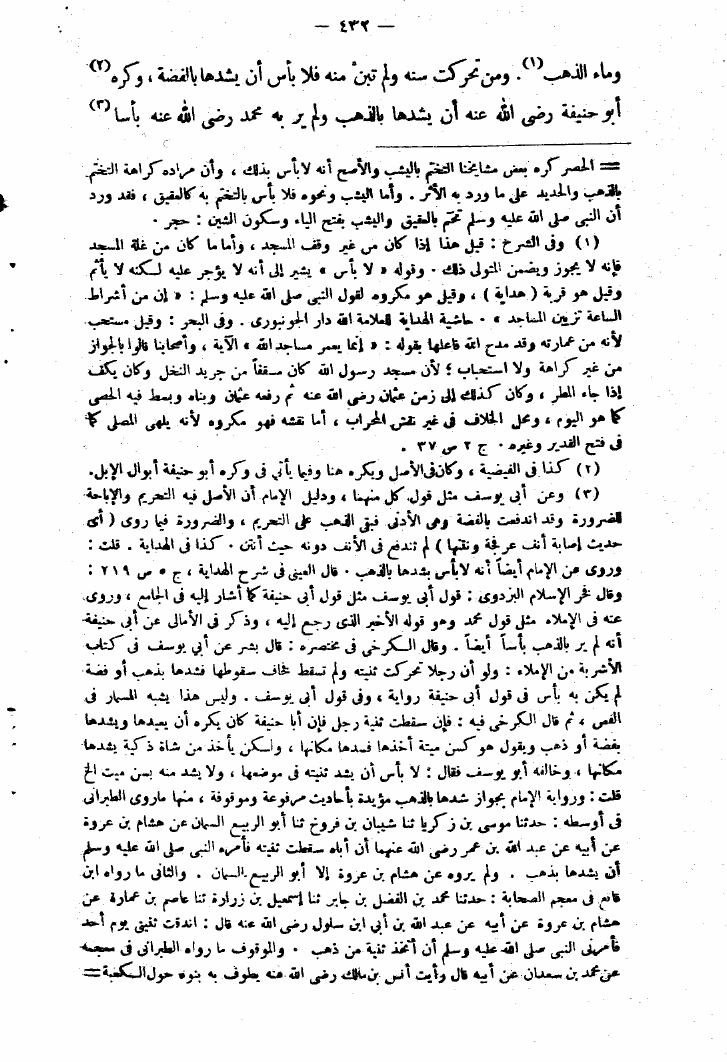 — ٤٣٢ —
وماء الذهب(١). ومن تحركت سنه ولم تبن منه فلا بأس أن يشدها بالفضة ، وكره(٢)
أبو حنيفة رضى الله عنه أن يشدها بالذهب ولم ير به محمد رضى الله عنه بأسا(٣)
= الحصر كره بعض مشايخنا التختم باليشب والأصح أنه لا بأس بذلك ، وأن مراده كراهة التختم
بالذهب والحديد على ما ورد به الأثر . وأما اليشب ونحوه فلا بأس بالتختم به كالعقيق ، فقد ورد
أن النبى صلى الله عليه وسلم تختم بالعقيق واليشب بفتح الياء وسكون الشين : حجر .
(١) وفى الشرح : قيل هذا إذا كان من غير وقف المسجد ، وأما ما كان من غلة المسجد
فإنه لا يجوز ويضمن المتولى ذلك . وقوله « لا بأس » يشير إلى أنه لا يؤجر عليه لكنه لا يأثم
وقيل هو قربة ( هداية ) ، وقيل هو مكروه لقول النبى صلى الله عليه وسلم : « إن من أشراط
الساعة تزيين المساجد » . حاشية الهداية للعلامة الله دار الجونبورى . وفى البحر : وقيل مستحب
لأنه من عمارته وقد مدح الله فاعلها بقوله : « إنما يعمر مساجد الله » الآية ، وأصحابنا قالوا بالجواز
من غير كراهة ولا استحباب ؛ لأن مسجد رسول الله كان مسقفاً من جريد النخل وكان يكف
إذا جاء المطر ، وكان كذلك إلى زمن عثمان رضى الله عنه ثم رفعه عثمان وبناه وبسط فيه الحصى
كما هو اليوم ، ومحل الخلاف فى غير نقش المحراب ، أما نقشه فهو مكروه لأنه يلهى المصلى كما
فى فتح القدير وغيره . ج ٢ ص ٣٧ .
(٢) كذا فى الفيضية ، وكان فى الأصل ويكره هنا وفيما يأتى فى وكره أبو حنيفة أبوال الإبل.
(٣) وعن أبى يوسف مثل قول كل منهما ، ودليل الإمام أن الأصل فيه التحريم والإباحة
للضرورة وقد اندفعت بالفضة وهى الأدنى فبقى الذهب على التحريم ، والضرورة فيما روى ( أى
حديث إصابة أنف عرفجة ونتنها ) لم تندفع فى الأنف دونه حيث أنتن . كذا فى الهداية . قلت :
وروى عن الإمام أيضاً أنه لا بأس بشدها بالذهب . قال العينى فى شرح الهداية ، ج ٥ ص ٢١٩ :
وقال فخر الإسلام البزدوى : قول أبى يوسف مثل قول أبى حنيفة كما أشار إليه فى الجامع ، وروى
عنه فى الإملاء مثل قول محمد وهو قوله الأخير الذى رجع إليه ، وذكر فى الأمالى عن أبى حنيفة
أنه لم ير بالذهب بأساً أيضاً . وقال الكرخى فى مختصره : قال بشر عن أبى يوسف فى كتاب
الأشربة من الإملاء : ولو أن رجلا تحركت ثنيته ولم تسقط فخاف سقوطها فشدها بذهب أو فضة
لم يكن به بأس فى قول أبى حنيفة رواية ، وفى قول أبى يوسف . وليس هذا يشبه المسمار فى
الفص ، ثم قال الكرخى فيه : فإن سقطت ثنية رجل فإن أبا حنيفة كان يكره أن يعيدها ويشدها
بفضة أو ذهب ويقول هو كسن ميتة أخذها فسدها مكانها ، ولكن يأخذ من شاة ذكية يشدها
مكانها ، وخالفه أبو يوسف فقال : لا بأس أن يشد ثنيته فى موضعها ، ولا يشد منه بسن ميت الخ
قلت : ورواية الإمام بجواز شدها بالذهب مؤيدة بأحاديث مرفوعة وموقوفة ، منها ماروى الطبرانى
فى أوسطه : حدثنا موسى بن زكريا ثنا شيبان بن فروخ ثنا أبو الربيع السمان عن هشام بن عروة
عن أبيه عن عبد الله بن عمر رضى الله عنهما أن أباه سقطت ثنيته فأمره النبى صلى الله عليه وسلم
أن يشدها بذهب . ولم يروه عن هشام بن عروة إلا أبو الربيع السمان . والثانى ما رواه ابن
قانع فى معجم الصحابة : حدثنا محمد بن الفضل بن جابر ثنا إسمعيل بن زرارة ثنا عاصم بن عمارة عن
هشام بن عروة عن أبيه عن عبد الله بن أبى ابن سلول رضى الله عنه قال : اندقت ثنيتى يوم أحد
فأمرنى النبى صلى الله عليه وسلم أن أتخذ ثنية من ذهب . والموقوف ما رواه الطبرانى فى معجمه
عن محمد بن سعدان عن أبيه قال رأيت أنس بن مالك رضى الله عنه يطوف به بنوه حول الكعبة =